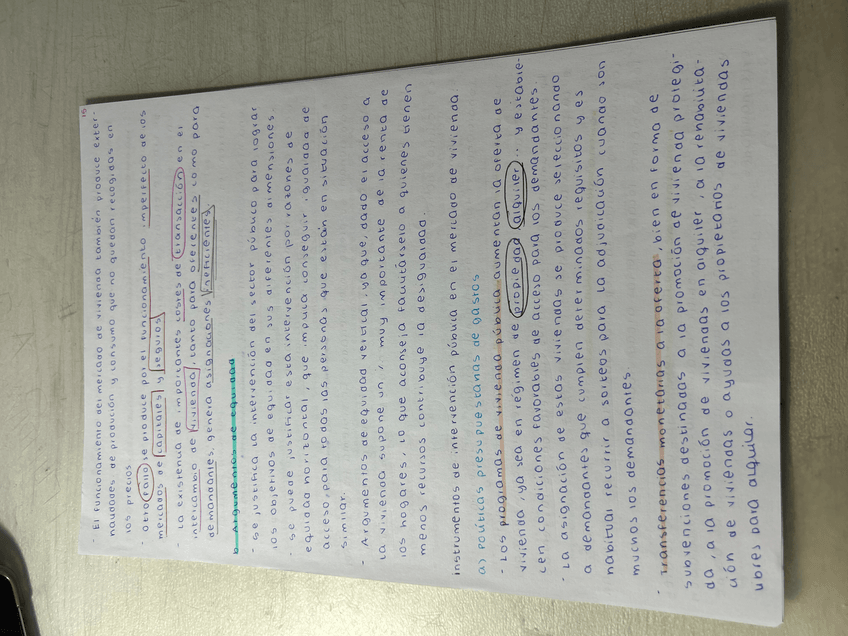 15
- El funcionamiento del mercado de vivienda también produce exter-
nalidades de produción y consumo que no quedan recogidas en
los precios
- otro fallo se produce por el funcionamiento imperfecto de los
mercados de capitales y seguros
- La existencia de importantes costes de transacción en el
intercambio de vivienda, tanto para oferentes como para
demandantes, genera asignaciones ineficientes
b. Argumentos de equidad
- Se justifica la intervención del sector público para lograr
los objetivos de equidad en sus diferentes dimensiones.
- Se puede justificar esta intervención por razones de
equidad horizontal, que implica conseguir igualdad de
acceso, para todas las personas que están en situación
similar.
- Argumentos de equidad vertical, ya que, dado el acceso a
la vivienda supone un % muy importante de la renta de
los hogares, lo que aconseja facilitárselo a quienes tienen
menos recursos contribuye la desigualdad.
instrumentos de intervención pública en el mercado de vivienda.
a) Políticas presupuestarias de gastos
- Los programas de vivienda pública aumentan la oferta de
vivienda, ya sea en régimen de propiedad alquiler.. y estable-
cen condiciones favorables de acceso para los demandantes.
- La asignación de estas viviendas se produce seleccionando
a demandantes que cumplen determinados requisitos y es
habitual recurrir a sorteos para la adjudicación cuando son
muchos los demandantes
- Transferencias monetarias a la oferta, bien en forma de
subvenciones destinadas a la promoción de vivienda protegi-
da, a la promoción de viviendas en alquiler, a la rehabilita-
ción de viviendas o ayudas a los propietarios de viviendas
libres para alquilar.